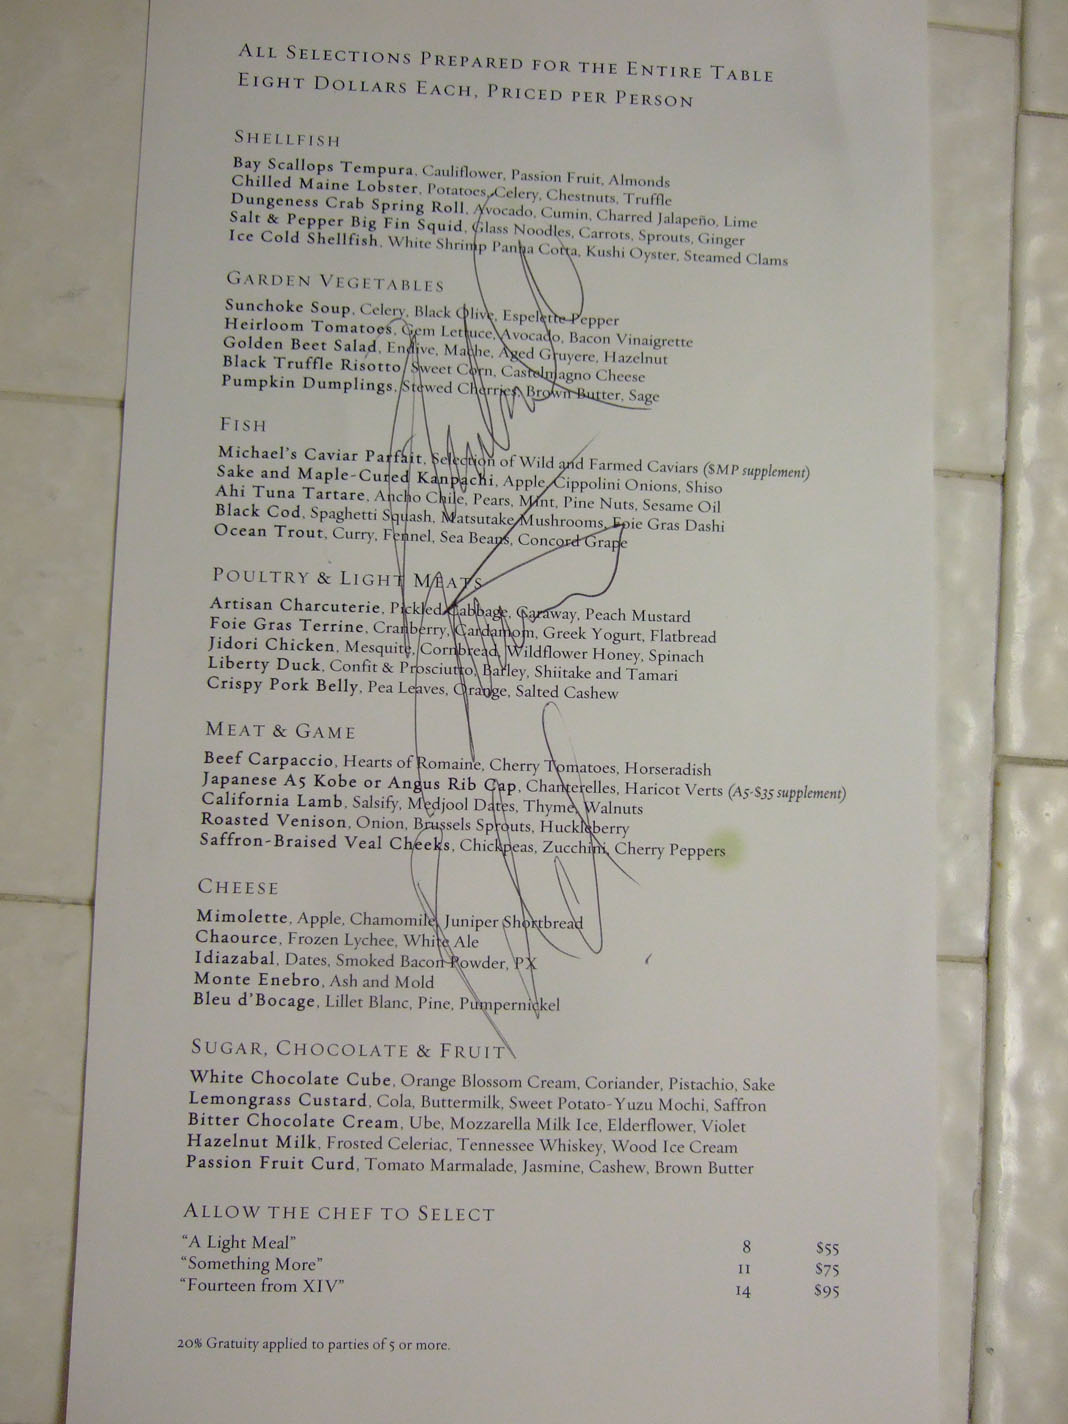 ALL SELECTIONS PREPARED FOR THE ENTIRE TABLE
EIGHT DOLLARS EACH, PRICED PER PERSON
SHELLFISH
Bay Scallops Tempura, Cauliflower, Passion Fruit, Almonds
Chilled Maine Lobster, Potatoes, Celery, Chestnuts, Truffle
Dungeness Crab Spring Roll, Avocado, Cumin, Charred Jalapeño, Lime
Salt & Pepper Big Fin Squid, Glass Noodles, Carrots, Sprouts, Ginger
Ice Cold Shellfish, White Shrimp Panna Cotta, Kushi Oyster, Steamed Clams
GARDEN VEGETABLES
Sunchoke Soup, Celery, Black Olive, Espelette Pepper
Heirloom Tomatoes, Gem Lettuce, Avocado, Bacon Vinaigrette
Golden Beet Salad, Endive, Mache, Aged Gruyere, Hazelnut
Black Truffle Risotto, Sweet Corn, Castelmagno Cheese
Pumpkin Dumplings, Stewed Cherries, Brown Butter, Sage
FISH
Michael's Caviar Parfait, Selection of Wild and Farmed Caviars ($MP supplement)
Sake and Maple-Cured Kanpachi, Apple, Cippolini Onions, Shiso
Ahi Tuna Tartare, Ancho Chile, Pears, Mint, Pine Nuts, Sesame Oil
Black Cod, Spaghetti Squash, Matsutake Mushrooms, Foie Gras Dashi
Ocean Trout, Curry, Fennel, Sea Beans, Concord Grape
POULTRY & LIGHT MEATS
Artisan Charcuterie, Pickled Cabbage, Caraway, Peach Mustard
Foie Gras Terrine, Cranberry, Cardamom, Greek Yogurt, Flatbread
Jidori Chicken, Mesquite, Cornbread, Wildflower Honey, Spinach
Liberty Duck, Confit & Prosciutto, Barley, Shiitake and Tamari
Crispy Pork Belly, Pea Leaves, Orange, Salted Cashew
MEAT & GAME
Beef Carpaccio, Hearts of Romaine, Cherry Tomatoes, Horseradish
Japanese A5 Kobe or Angus Rib Cap, Chanterelles, Haricot Verts (A5-$35 supplement)
California Lamb, Salsify, Medjool Dates, Thyme, Walnuts
Roasted Venison, Onion, Brussels Sprouts, Huckleberry
Saffron-Braised Veal Cheeks, Chickpeas, Zucchini, Cherry Peppers
CHEESE
Mimolette, Apple, Chamomile, Juniper Shortbread
Chaource, Frozen Lychee, White Ale
Idiazabal, Dates, Smoked Bacon Powder, PX
Monte Enebro, Ash and Mold
Bleu d'Bocage, Lillet Blanc, Pine, Pumpernickel
SUGAR, CHOCOLATE & FRUIT
White Chocolate Cube, Orange Blossom Cream, Coriander, Pistachio, Sake
Lemongrass Custard, Cola, Buttermilk, Sweet Potato-Yuzu Mochi, Saffron
Bitter Chocolate Cream, Ube, Mozzarella Milk Ice, Elderflower, Violet
Hazelnut Milk, Frosted Celeriac, Tennessee Whiskey, Wood Ice Cream
Passion Fruit Curd, Tomato Marmalade, Jasmine, Cashew, Brown Butter
ALLOW THE CHEF TO SELECT
"A Light Meal" 8 $55
"Something More" 11 $75
"Fourteen from XIV" 14 $95
20% Gratuity applied to parties of 5 or more.